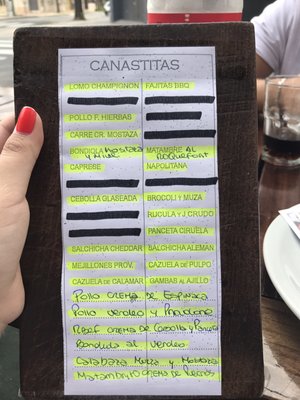 CANASTITAS
LOMO CHAMPIGNON FAJITAS BBQ
POLLO F. HIERBAS
CARRE CR. MOSTAZA
BONDIOLA MOSTAZA Y MIEL MATAMBRE AL ROQUEFORT
CAPRESE NAPOLITANA
CEBOLLA GLASEADA BROCOLI Y MUZA
RUCULA Y J. CRUDO
PANCETA CIRUELA
SALCHICHA CHEDDAR SALCHICHA ALEMAN
MEJILLONES PROV. CAZUELA DE PULPO
CAZUELA DE CALAMAR GAMBAS AL AJILLO
Pollo crema de Espinaca
Pollo verdeo y Provolone
Beef crema de Cebolla y Panceta
Bondiola al verdeo
Calabaza Muza y Mostaza
Matambrito crema de